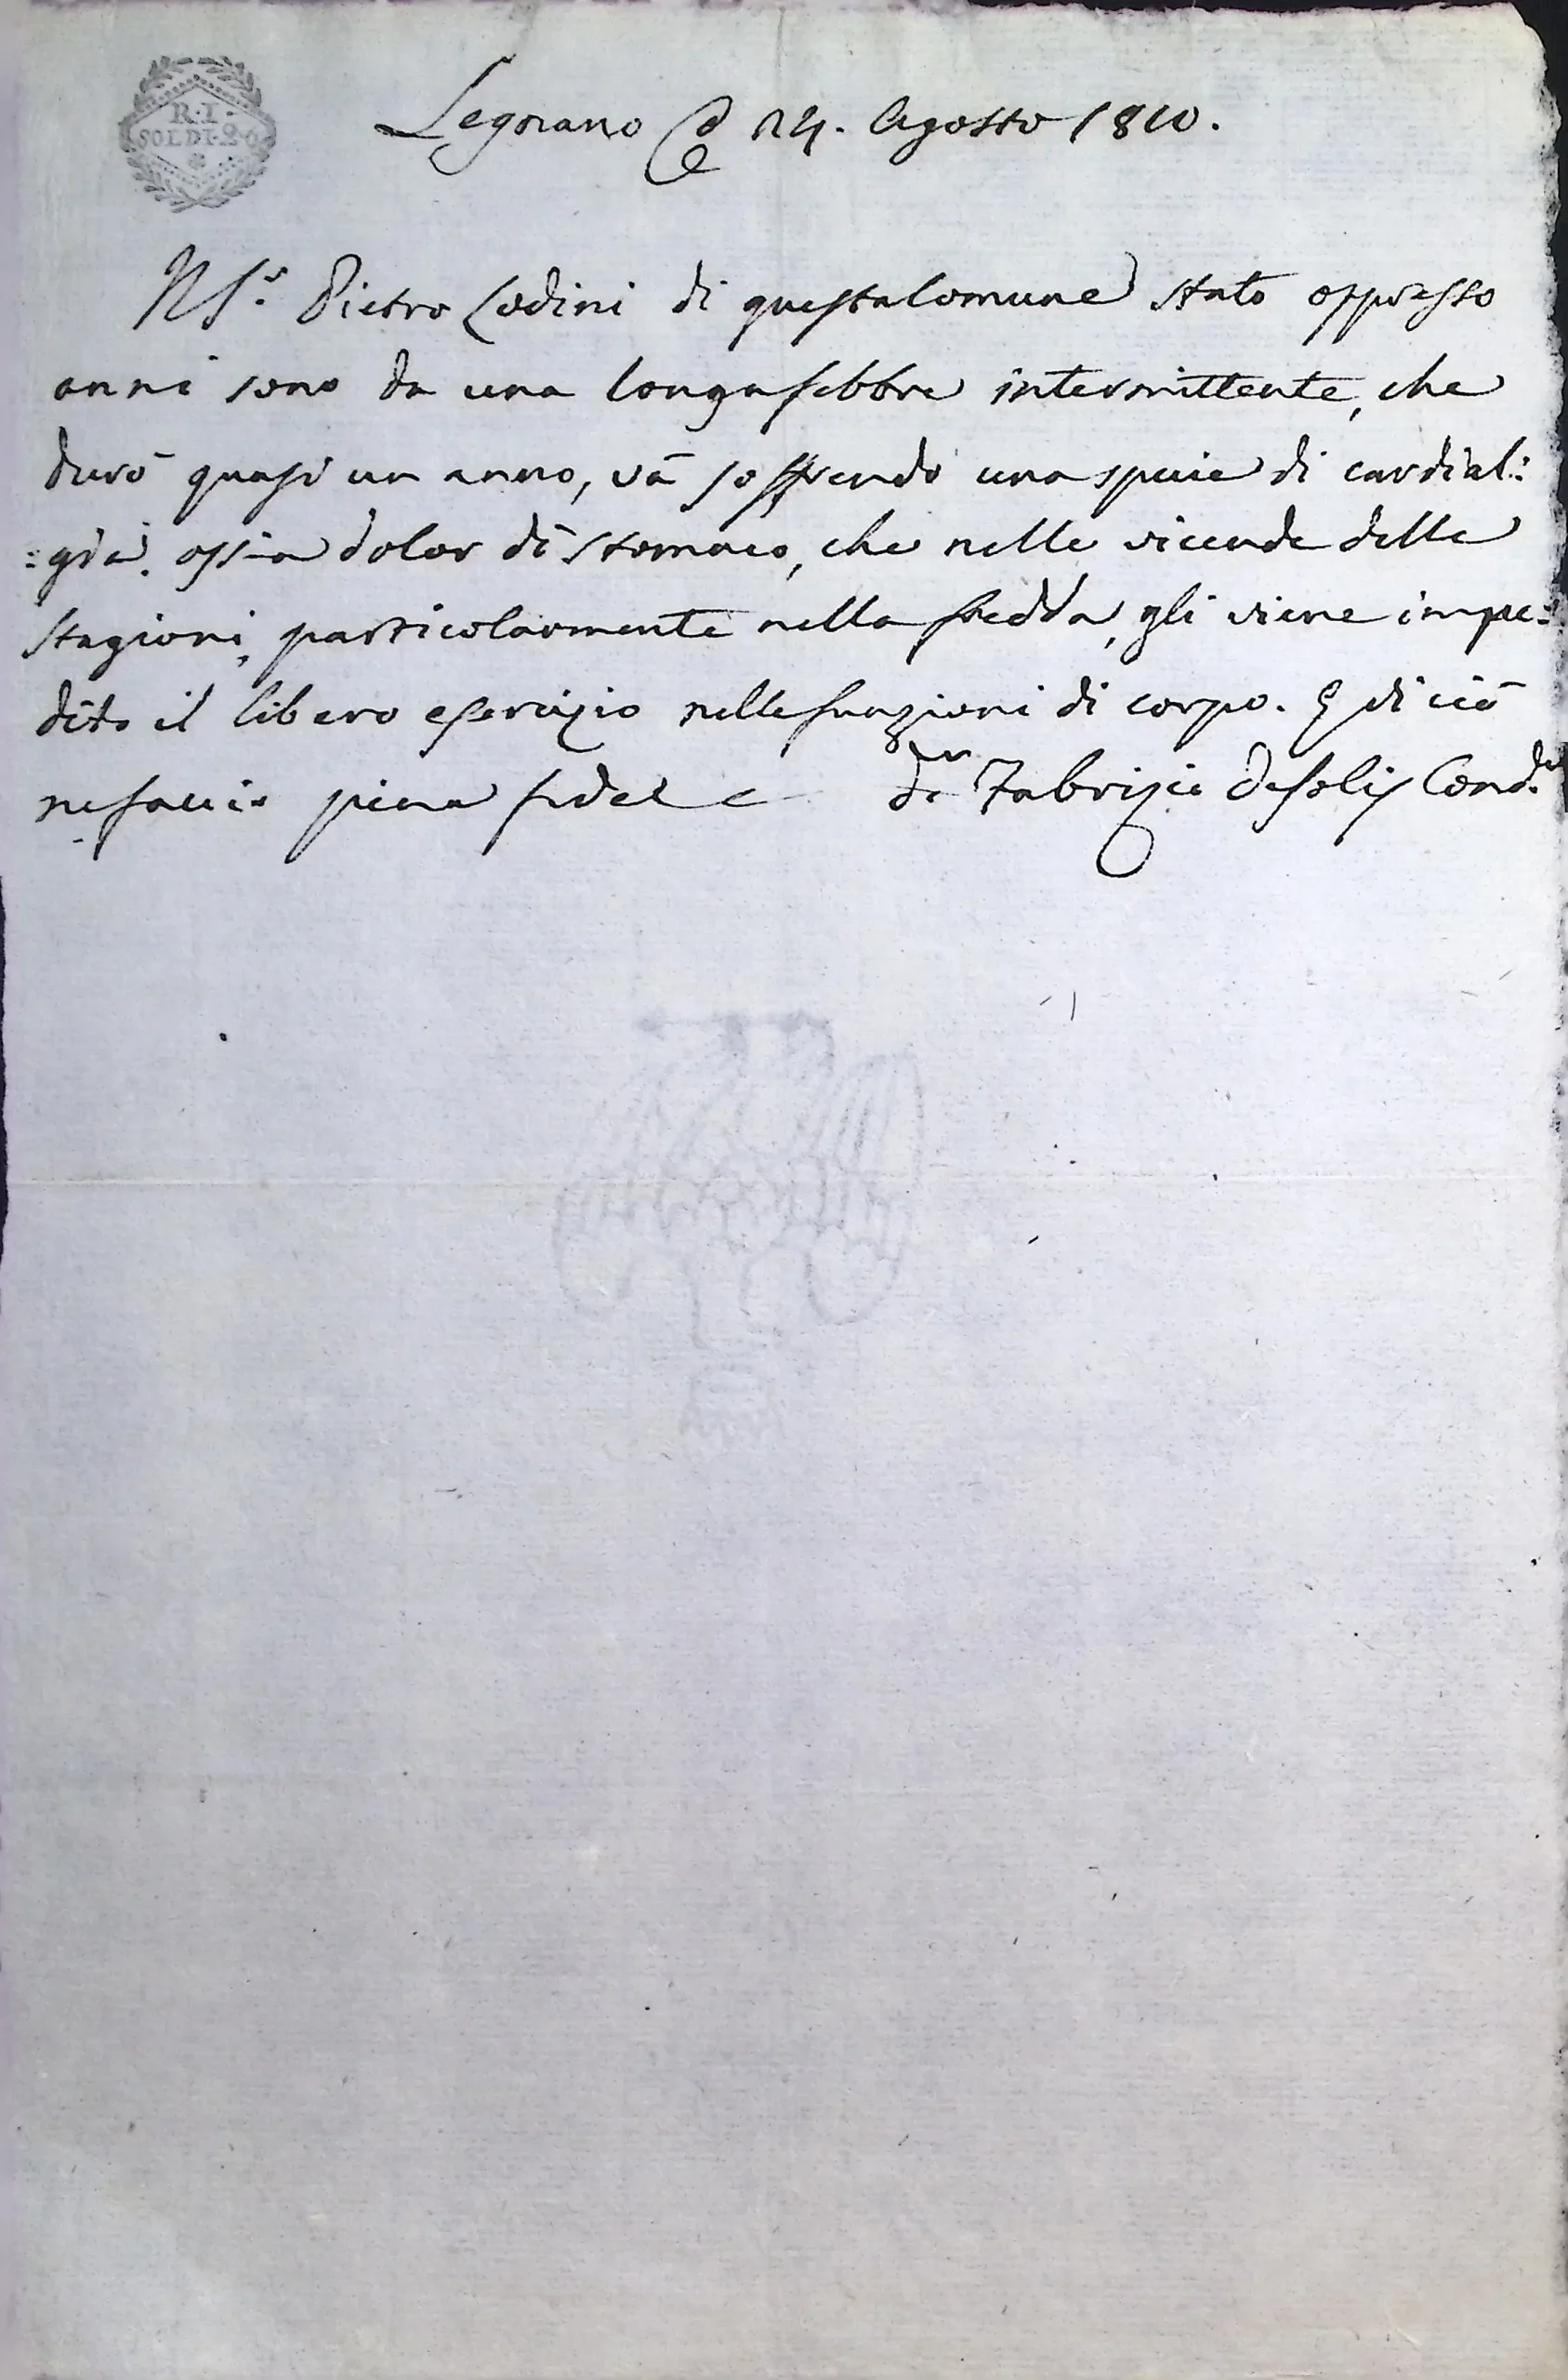 R. I.
SOLDI. 2. 6
Legnano 24. Agosto 1810.
Il Sr. Pietro Codini di questa Comune stato oppresso
anni sono da una longa febbre intermittente, che
durò quasi un anno, và soffrendo una specie di cardial:
:gia, ossia dolor di stomaco, che nelle vicende delle
stagioni, particolarmente nella fredda, gli viene impe:
dito il libero esercizio nelle funzioni di corpo. E di ciò
ne faccio piena fede
Fabrizio